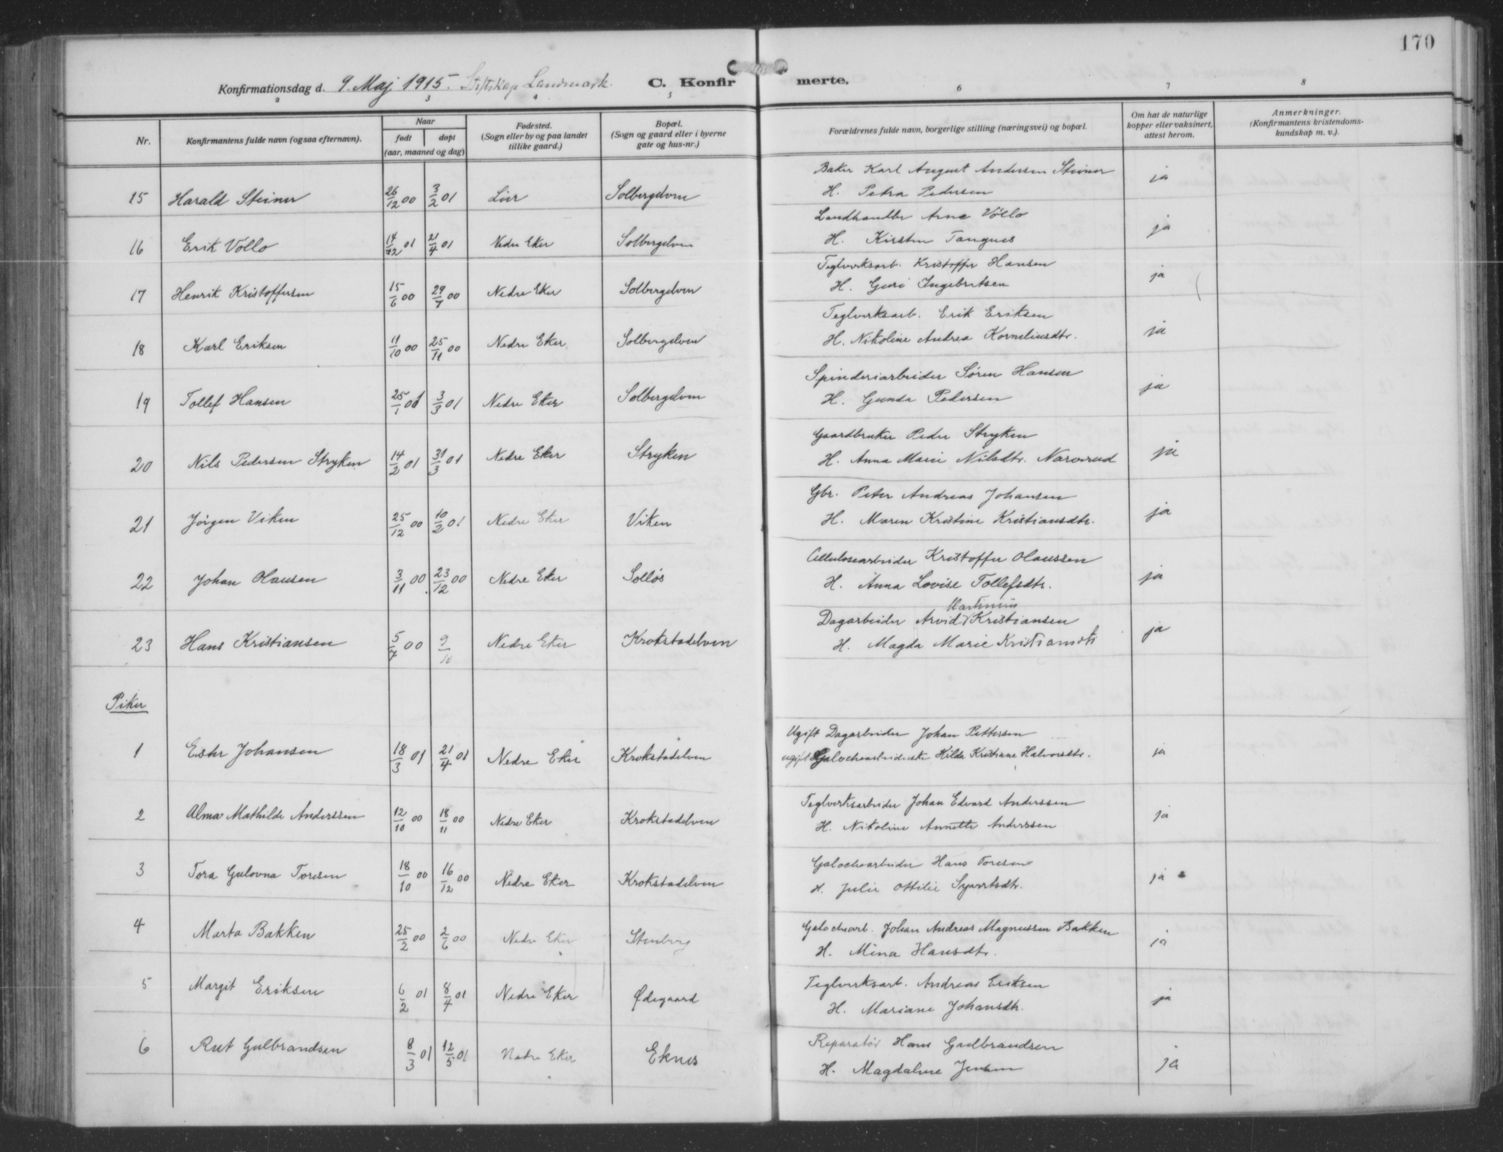 170
Konfirmationsdag d. 9 Maj 1915. Stiftskap. Landmark. C. Konfirmerte.
2 3 4 5 6 7 8
Nr. Konfirmantens fulde navn (ogsaa efternavn). Naar født døpt (aar, maaned og dag) Fødested. (Sogn eller by og paa landet tillike gaard.) Bopæl. (Sogn og gaard eller i byerne gate og hus-nr.) Forældrenes fulde navn, borgerlige stilling (næringsvei) og bopæl. Om hat de naturlige kopper eller vaksinert, attest herom. Anmerkninger. (Konfirmantens kristendomskundskap m. v.).
15 Harald Steiner 26/12 00 3/2 01 Lier Solbergelven Baker Karl August Andersen Steiner ja
H. Petra Pedersen
16 Erik Vollo 01 21/4 01 Nedre Eker Solbergelven Landhandler Arne Vollo ja
H. Kirsten Tangnes
17 Henrik Kristoffersen 15/6 00 29/7 00 Nedre Eker Solbergelven Teglverksarb. Kristoffer Hansen ja
H. Guro Ingebretsen
18 Karl Eriksen 11/10 00 25/11 00 Nedre Eker Solbergelven Teglverksarb. Erik Eriksen ja
H. Nikoline Andrea Korneliusdtr.
19 Tollef Hansen 25/1 01 3/3 01 Nedre Eker Solbergelven Spinderiarbeider Søren Hansen ja
H. Gunda Pedersen
20 Nils Pedersen Stryken 14/2 01 31/3 01 Nedre Eker Stryken Gaardbruker Peder Stryken ja
H. Anna Marie Nilsdtr. Narverud
21 Jørgen Viken 25/12 00 10/2 01 Nedre Eker Viken Gbr. Peter Andreas Johansen ja
H. Maren Kristine Kristiansdtr.
22 Johan Olausen 3/11 00 23/12 00 Nedre Eker Solløs Cellulosearbeider Kristoffer Olaussen ja
H. Anna Lovise Tollefsdtr.
Martinius
23 Hans Kristiansen 5/7 00 9/10 Nedre Eker Krokstadelven Dagarbeider Arvid Kristiansen ja
H. Magda Marie Kristiansdtr
Piker
1 Ester Johansen 18/3 01 21/4 01 Nedre Eker Krokstadelven Ugift Dagarbeider Johan Pettersen
ugift Galochearbeiderske Hilda Kristiane Halvorsdtr. ja
2 Alma Mathilde Anderssen 12/10 00 18/11 00 Nedre Eker Krokstadelven Teglverksarbeider Johan Edvard Anderssen ja
H. Nikoline Annette Anderssen
3 Tora Gulovna Toresen 18/10 00 16/12 00 Nedre Eker Krokstadelven Galochearbeider Hans Toresen ja
H. Julie Ottilie Syvertsdtr.
4 Marta Bakken 25/2 00 2/6 00 Nedre Eker Stenberg Galochearb. Johan Andreas Magnussen Bakken ja
H. Mina Hansdtr.
5 Margit Eriksen 6/2 01 8/4 01 Nedre Eker Ødegaard Teglverksarb. Andreas Eriksen ja
H. Mariane Johansdtr.
6 Rut Gulbrandsen 8/3 01 12/5 01 Nedre Eker Eknes Reparatør Hans Gulbrandsen ja
H. Magdalene Jensen